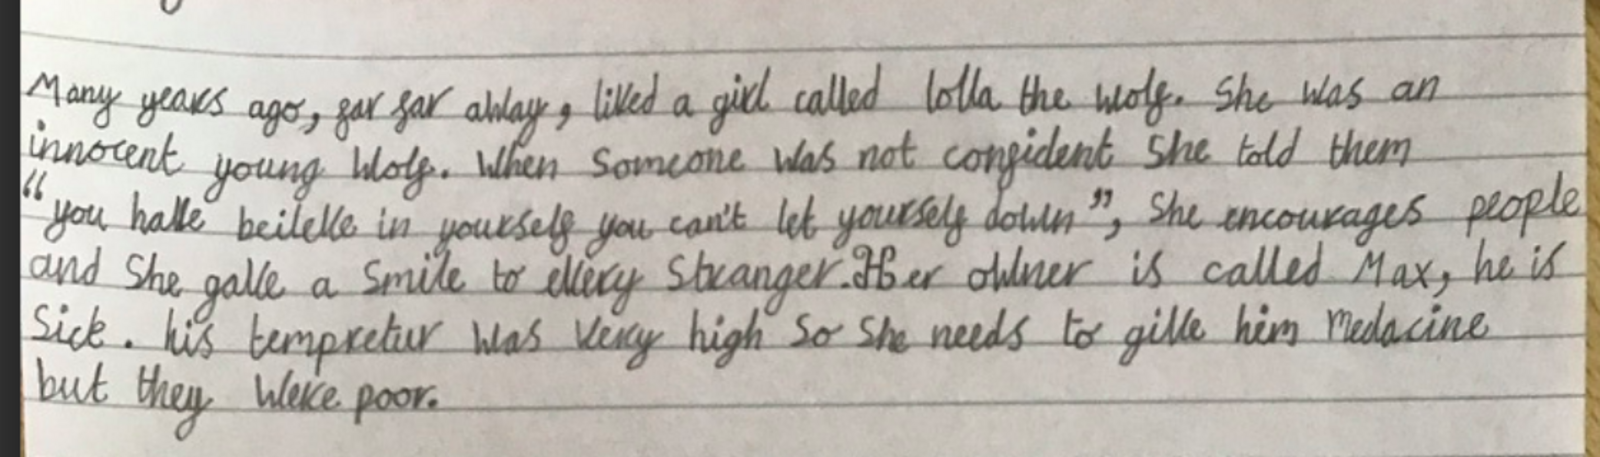 Many years ago, far far away, lived a girl called lolla the wolf. She was an
innocent young Wolf. When Someone was not confident She told them
"you have beileve in yourself you can't let yourself down", She encourages people
and She gave a Smile to every Stranger. Her owner is called Max, he is
Sick. his tempretur was Very high So She needs to give him Medacine
but they were poor.